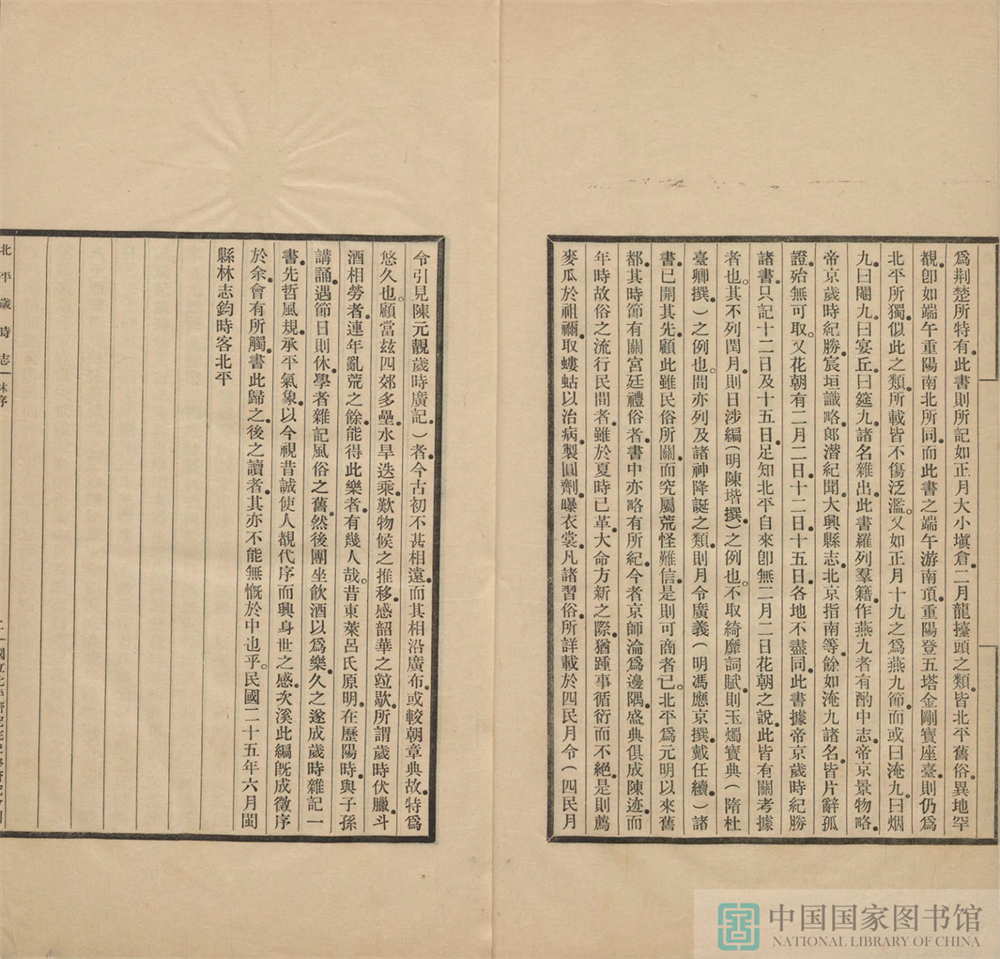 爲荆楚所特有此書則所記如正月大小塡倉二月龍擡頭之類皆北平舊俗異地罕
覩卽如端午重陽南北所同而此書之端午游南頂重陽登五塔金剛寶座臺則仍爲
北平所獨似此之類所載皆不傷泛濫又如正月十九之爲燕九節而或曰淹九曰烟
九曰閹九曰宴丘曰筵九諸名雜出此書羅列羣籍作燕九者有酌中志帝京景物略
帝京歲時紀勝宸垣識略郎潛紀聞大興縣志北京指南等餘如淹九諸名皆片辭孤
證殆無可取又花朝有二月二日十二日十五日各地不盡同此書據帝京歲時紀勝
諸書只記十二日及十五日足知北平自來卽無二月二日花朝之說此皆有關考據
者也其不列閏月則日涉編（明陳堦撰）之例也不取綺靡詞賦則玉燭寶典（隋杜
臺卿撰）之例也間亦列及諸神降誕之類則月令廣義（明馮應京撰戴任續）諸
書已開其先顧此雖民俗所關而究屬荒怪難信是則可商者已北平爲元明以來舊
都其時節有關宮廷禮俗者書中亦略有所紀今者京師淪爲邊隅盛典俱成陳迹而
年時故俗之流行民間者雖於夏時已革大命方新之際猶踵事循衍而不絕是則薦
麥瓜於祖禰取螻蛄以治病製圓劑曝衣裳凡諸習俗所詳載於四民月令（四民月
令引見陳元靚歲時廣記）者今古初不甚相遠而其相沿廣布或較朝章典故特爲
悠久也顧當玆四郊多壘水旱迭乘歎物候之推移感韶華之竝歇所謂歲時伏臘斗
酒相勞者連年亂荒之餘能得此樂者有幾人哉昔東萊呂氏原明在歷陽時與子孫
講誦遇節日則休學者雜記風俗之舊然後團坐飮酒以爲樂久之遂成歲時雜記一
書先哲風規承平氣象以今視昔誠使人覩代序而興身世之感次溪此編旣成徵序
於余會有所觸書此歸之後之讀者其亦不能無慨於中也乎民國二十五年六月閩
縣林志鈞時客北平
北平歲時志 林序
二
中国国家图书馆
NATIONAL LIBRARY OF CHINA